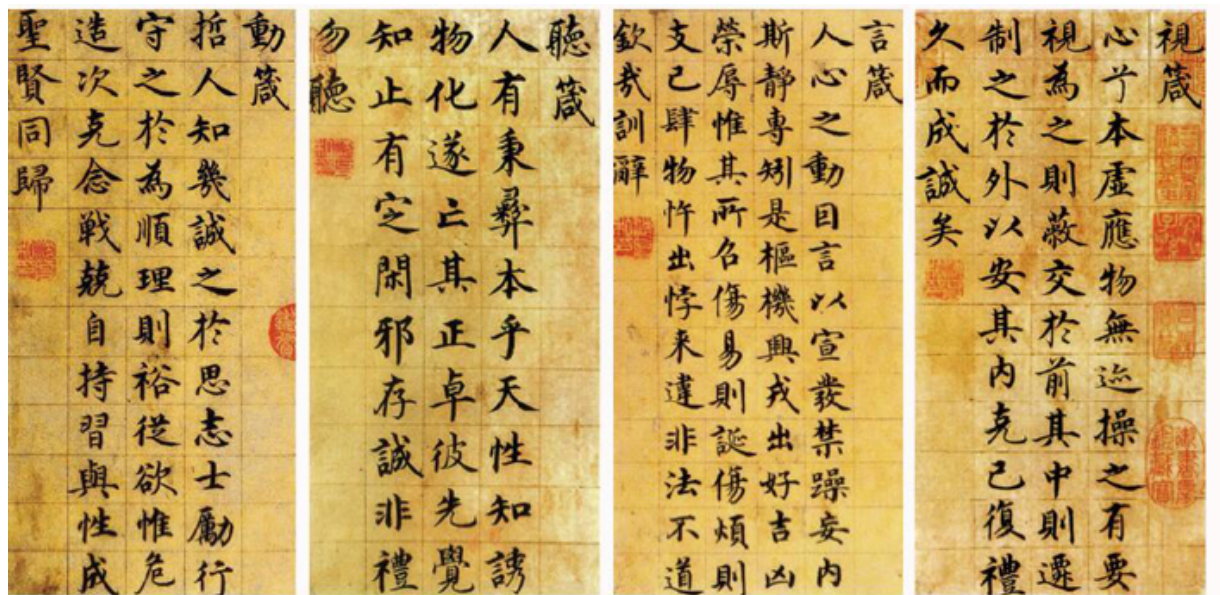 視箴
心兮本虛應物無迹操之有要
視為之則蔽交於前其中則遷
制之於外以安其內克己復禮
久而成誠矣
言箴
人心之動因言以宣發禁躁妄內
斯靜專矧是樞機興戎出好吉凶
榮辱惟其所召傷易則誕傷煩則
支己肆物忤出悖来違非法不道
欽哉訓辭
聽箴
人有秉彝本乎天性知誘
物化遂亡其正卓彼先覺
知止有定閑邪存誠非禮
勿聽
動箴
哲人知幾誠之於思志士勵行
守之於為順理則裕從欲惟危
造次克念戦兢自持習與性成
聖賢同歸